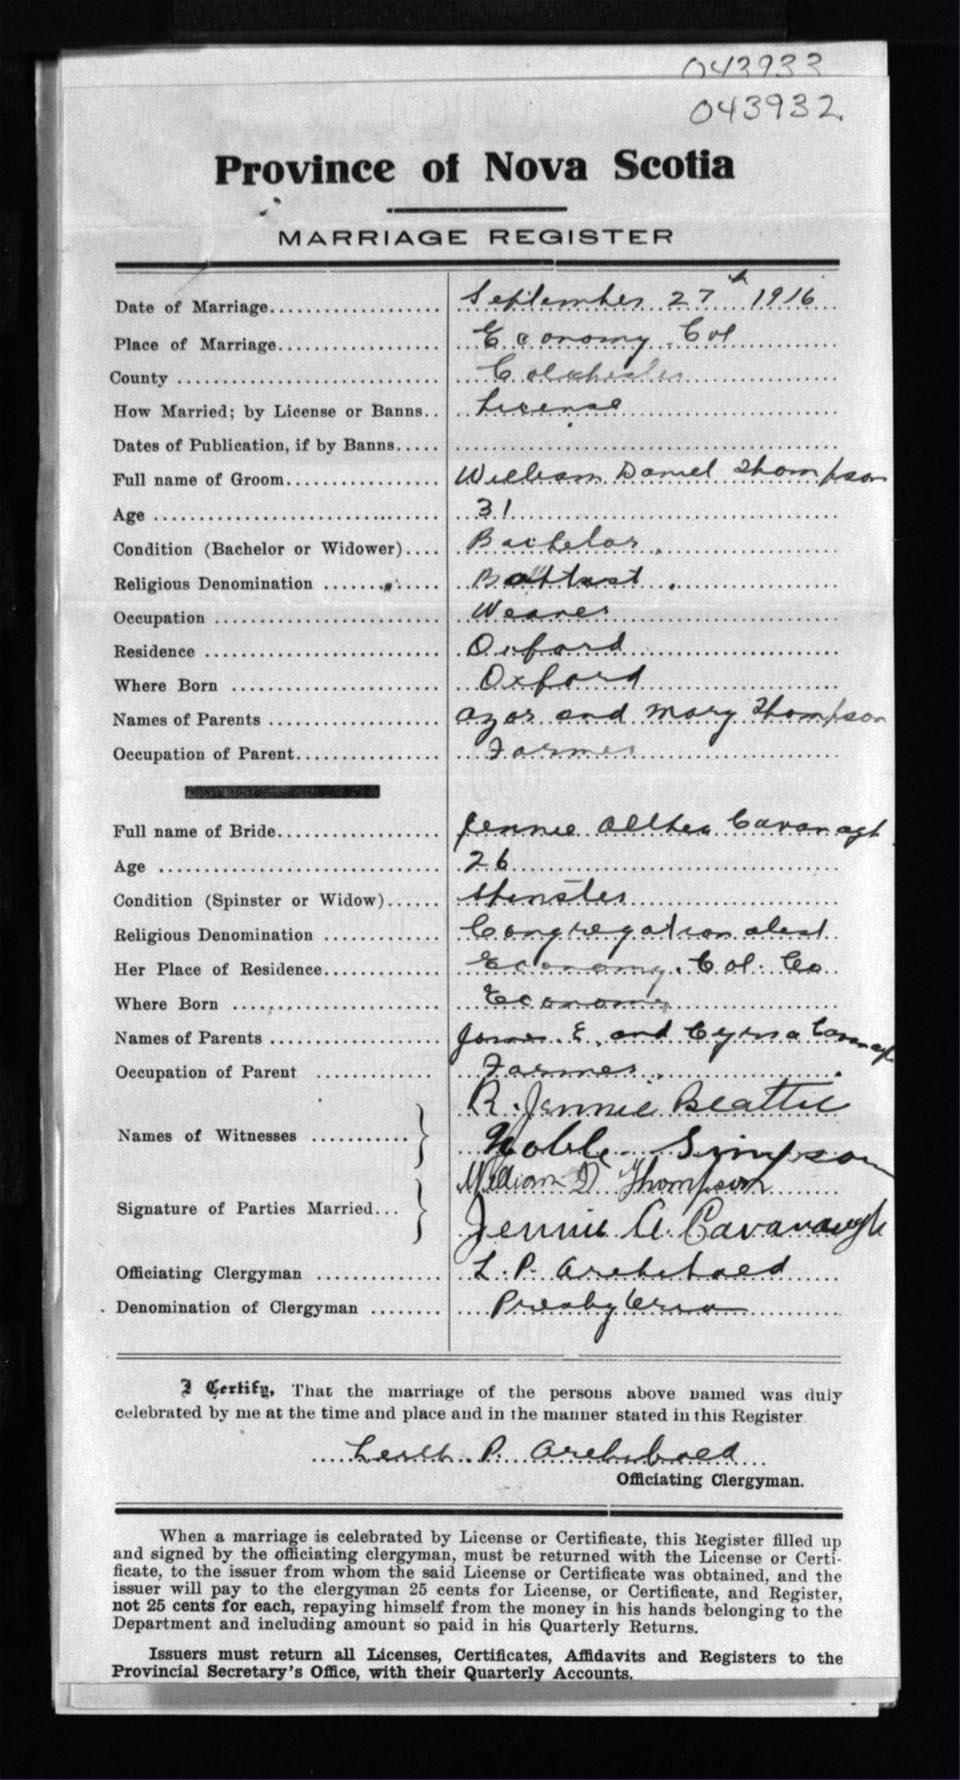 043933
043932.
Province of Nova Scotia
MARRIAGE REGISTER
Date of Marriage................... September 27th 1916
Place of Marriage................... Economy Col
County ............................. Colchester
How Married; by License or Banns.. License
Dates of Publication, if by Banns.....
Full name of Groom.................. William Daniel Thompson
Age ................................ 31
Condition (Bachelor or Widower).... Bachelor
Religious Denomination ............. Baptist
Occupation ......................... Weaver
Residence .......................... Oxford
Where Born ......................... Oxford
Names of Parents ................... Azor and Mary Thompson
Occupation of Parent................ Farmer
Full name of Bride.................. Jennie Althea Cavanagh
Age ................................ 26
Condition (Spinster or Widow)...... Spinster
Religious Denomination ............. Congregationalist
Her Place of Residence............. Economy, Col. Co
Where Born ......................... Economy
Names of Parents ................... James E. and Cavanagh
Occupation of Parent ............... Farmer
R. Jennie Beattie
Names of Witnesses ...........
Noble Simpson
William D Thompson
Signature of Parties Married...
Jennie A. Cavanaugh
Officiating Clergyman .............. L. P. Archibald
Denomination of Clergyman ........ Presbyterian
I Certify, That the marriage of the persons above named was duly
celebrated by me at the time and place and in the manner stated in this Register
P. Archibald
Officiating Clergyman.
When a marriage is celebrated by License or Certificate, this Register filled up
and signed by the officiating clergyman, must be returned with the License or Certi-
ficate, to the issuer from whom the said License or Certificate was obtained, and the
issuer will pay to the clergyman 25 cents for License, or Certificate, and Register,
not 25 cents for each, repaying himself from the money in his hands belonging to the
Department and including amount so paid in his Quarterly Returns.
Issuers must return all Licenses, Certificates, Affidavits and Registers to the
Provincial Secretary's Office, with their Quarterly Accounts.